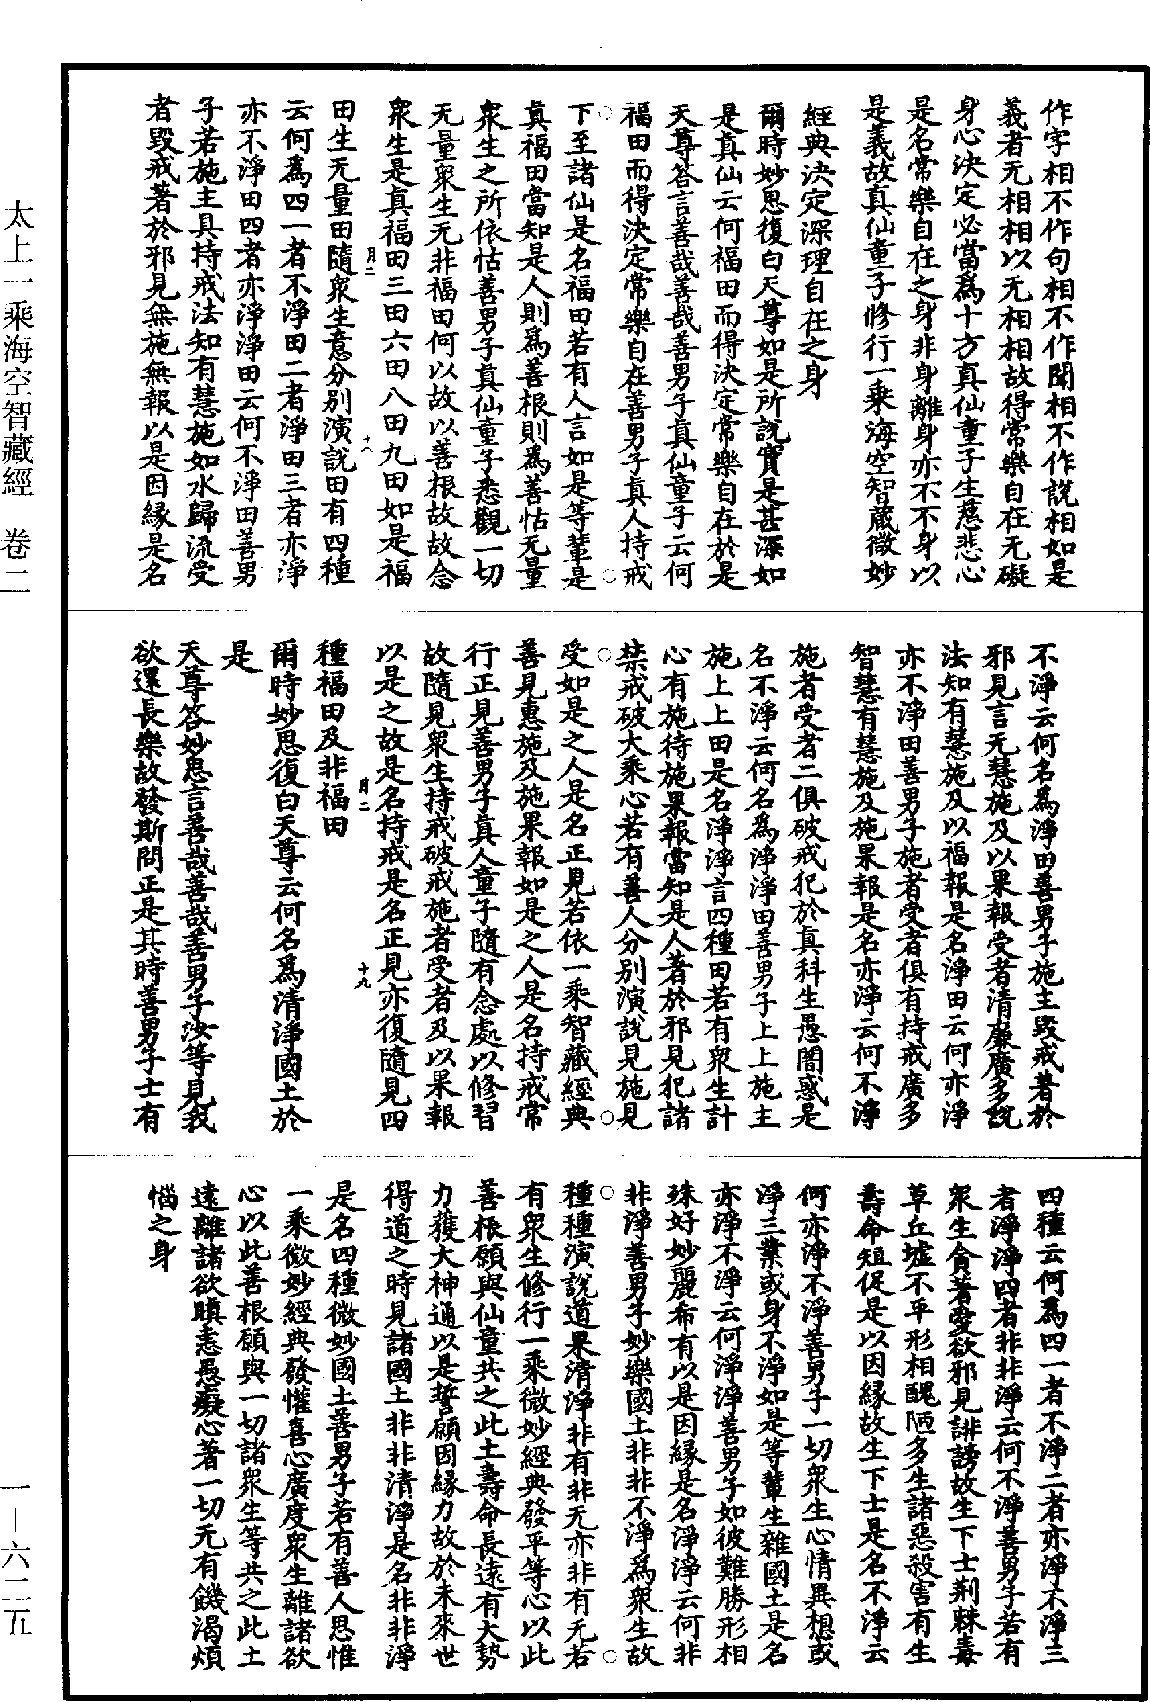 作字相不作句相不作聞相不作説相如是
義者无相相以无相相故得常樂自在无礙
身心決定必當爲十方真仙童子生慈悲心
是名常樂自在之身非身離身亦不不身以
是義故真仙童子修行一乘海空智藏微妙
經典決定深理自在之身
爾時妙思復白天尊如是所說實是甚深如
是真仙云何福田而得決定常樂自在於是
天尊答言善哉善哉善男子真仙童子云何
福田而得決定常樂自在善男子真人持戒
下至諸仙是名福田若有人言如是等輩是
真福田當知是人則爲善根則爲善怙无量
衆生之所依怙善男子真仙童子悉觀一切
无量衆生无非福田何以故以善根故故念
衆生是真福田三田六田八田九田如是福
月二
田生无量田隨衆生意分別演說田有四種
十八
云何爲四一者不淨田二者淨田三者亦淨
亦不淨田四者亦淨淨田云何不淨田善男
子若施主具持戒法知有慧施如水歸流受
者毀戒著於邪見無施無報以是因緣是名
不淨云何名爲淨田善男子施主毀戒著於
邪見言无慧施及以果報受者清廉廣多説
法知有慧施及以福報是名淨田云何亦淨
亦不淨田善男子施者受者俱有持戒廣多
智慧有慧施及施果報是名亦淨云何不淨
施者受者二俱破戒犯於真科生愚闇惑是
名不淨云何名爲淨淨田善男子上上施主
施上上田是名淨淨言四種田若有衆生計
心有施待施果報當知是人著於邪見犯諸
禁戒破大乘心若有善人分別演說見施見
受如是之人是名正見若依一乘智藏經典
善見惠施及施果報如是之人是名持戒常
行正見善男子真人童子隨有念處以修習
故隨見衆生持戒破戒施者受者及以果報
以是之故是名持戒是名正見亦復隨見四
種福田及非福田
月二
爾時妙思復白天尊云何名爲清淨國土於
十九
是
天尊答妙思言善哉善哉善男子汝等見我
欲還長樂故發斯問正是其時善男子土有
四種云何爲四一者不淨二者亦淨不淨三
者淨淨四者非非淨云何不淨善男子若有
衆生貪著愛欲邪見誹謗故生下士荆棘毒
草丘墟不平形相醜陋多生諸惡殺害有生
壽命短促是以因緣故生下士是名不淨云
何亦淨不淨善男子一切衆生心情異想或
淨三業或身不淨如是等輩生雜國土是名
亦淨不淨云何淨淨善男子如彼難勝形相
殊好妙麗希有以是因緣是名淨淨云何非
非淨善男子妙樂國土非非不淨爲衆生故
種種演說道果清淨非有非无亦非有无若
有衆生修行一乘微妙經典發平等心以此
善根願與仙童共之此土壽命長遠有大勢
力獲大神通以是誓願因緣力故於未來世
得道之時見諸國土非非清淨是名非非淨
是名四種微妙國土善男子若有善人思惟
一乘微妙經典發懽喜心廣度衆生離諸欲
心以此善根願與一切諸衆生等共之此土
遠離諸欲瞋恚愚癡心著一切无有饑渴煩
惱之身
太上一乘海空智藏經 卷二
一—六二五